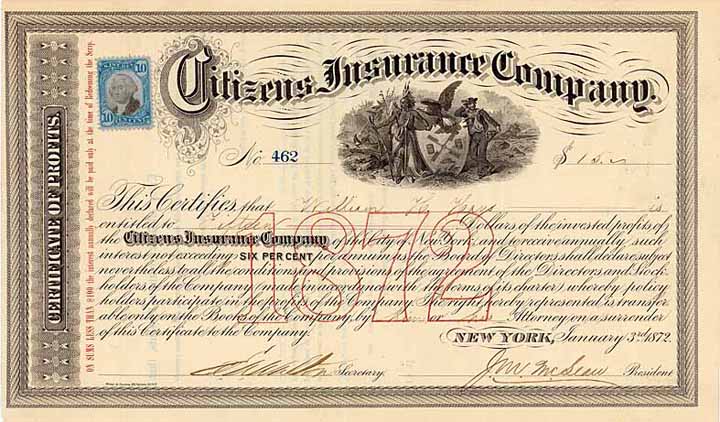 Citizens Insurance Company.
10 10
No 462 $15
This Certifies, that William H. is
entitled to Dollars of the invested profits of
the Citizens Insurance Company of the City of New York, and to receive annually such
interest not exceeding SIX PER CENT per annum as the Board of Directors shall declare subject
nevertheless to all the conditions and provisions of the agreement of the Directors and Stock
holders of the Company (made in accordance with the terms of its charter) whereby policy
holders participate in the profits of the company. The sum hereby represented is transfer
able only on the Books of the Company by him or his Attorney on a surrender
of this Certificate to the Company.
1872
NEW YORK, January 3rd 1872.
Secretary. J.M. McLean President
CERTIFICATE OF PROFITS.
ON SUMS LESS THAN $100 the interest annually declared will be paid only at the time of Redeeming the Scrip.